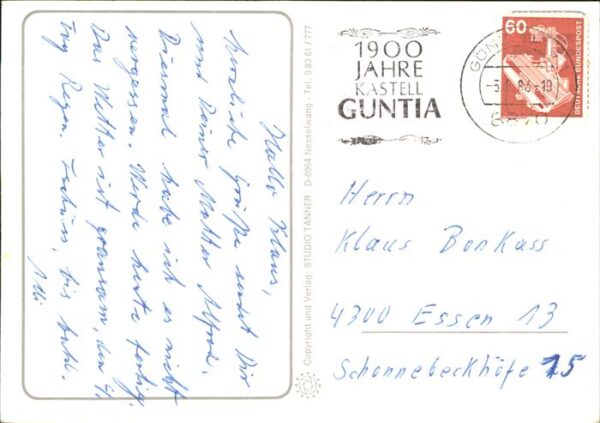 Hallo Klaus,
herzliche Grüße sendet Dir
und Deiner Mutter Alfred.
Diesmal habe ich es nicht
vergessen. Werde heute fertig.
Das Wetter ist grausam, den 4.
Tag Regen. Tschüss, bis bald.
Adi
Copyright und Verlag: STUDIO TANNER D-8964 Nesselwang · Tel. 0 83 61 / 777
1900
JAHRE
KASTELL
GUNTIA
60
DEUTSCHE BUNDESPOST
Herrn
Klaus Bonkass
4300 Essen 13
Schonnebeckhöfe 15